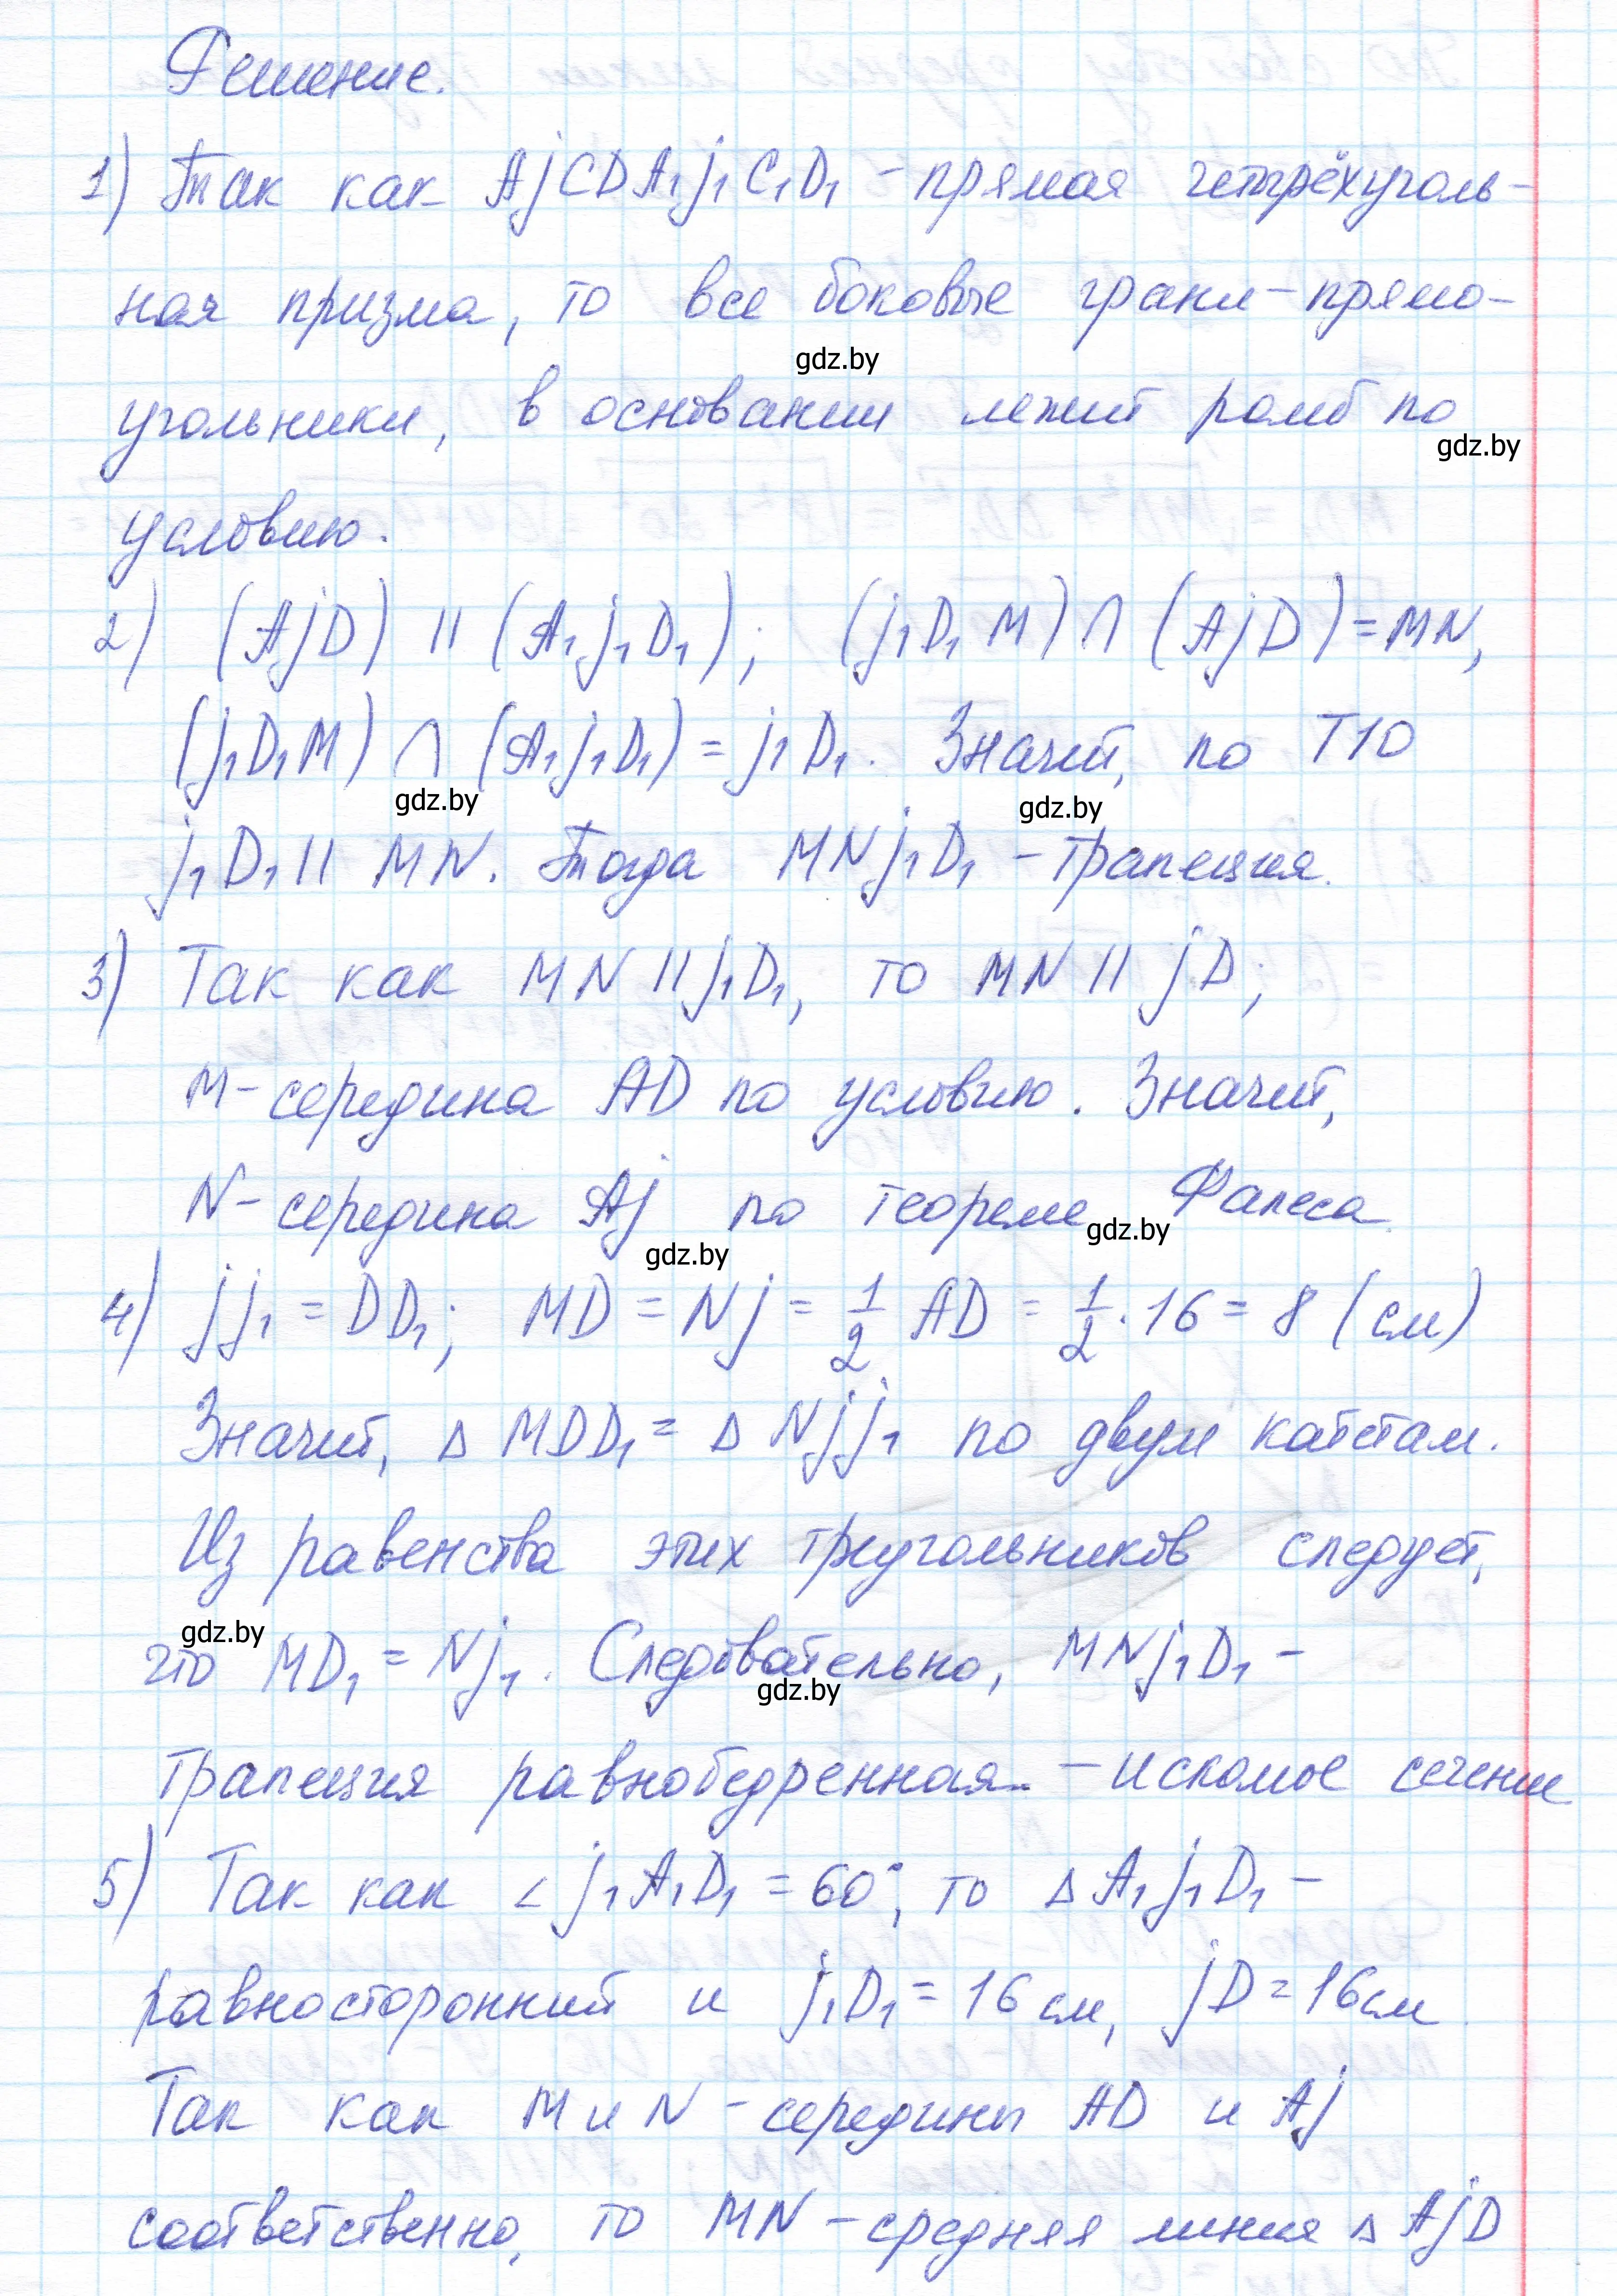 Решение.
1) Так как AjCDA₁j₁C₁D₁ – прямая четырёхуголь-
ная призма, то все боковые грани – прямо-
gdz.by
угольники, в основании лежит ромб по
gdz.by
условию.
2) (AjD) || (A₁j₁D₁); (j₁D₁M) ∩ (AjD) = MN,
(j₁D₁M) ∩ (A₁j₁D₁) = j₁D₁. Значит, по Т10
gdz.by gdz.by
j₁D₁ || MN. Тогда MNj₁D₁ – трапеция.
3) Так как MN || j₁D₁, то MN || jD;
M – середина AD по условию. Значит,
N – середина Aj по теореме Фалеса
gdz.by gdz.by
4) jj₁ = DD₁; MD = Nj = 1/2 AD = 1/2 · 16 = 8 (см)
Значит, Δ MDD₁ = Δ Njj₁ по двум катетам.
Из равенства этих треугольников следует,
gdz.by
что MD₁ = Nj₁. Следовательно, MNj₁D₁ –
gdz.by
трапеция равнобедренная – искомое сечение
5) Так как ∠ j₁A₁D₁ = 60°, то Δ A₁j₁D₁ –
равносторонний и j₁D₁ = 16 см, jD = 16 см
Так как M и N – середины AD и Aj
соответственно, то MN – средняя линия Δ AjD